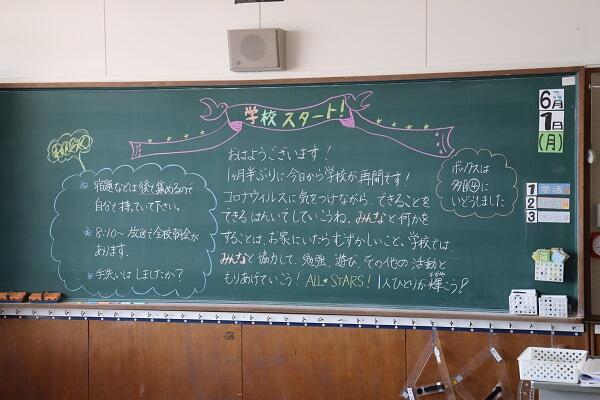 学校スタート!
おはようございます!
1ヶ月半ぶりに今日から学校が再開です!
コロナウイルスに気をつけながら、できることを
できるはんいでしていこうね。みんなと何かを
することは、お家にいたらむずかしいこと。学校では、
みんなと協力して、勉強、遊び、その他の活動と
もりあげていこう! ALL★STARS! 1人ひとりが輝こう!
宿題などは後で集めるので
自分で持っていて下さい。
8:10〜 放送で全校朝会が
あります。
手洗いはしましたか?
ボックスは
多目④に
いどうしました
6月
1日
(月)
1 学活
2
3